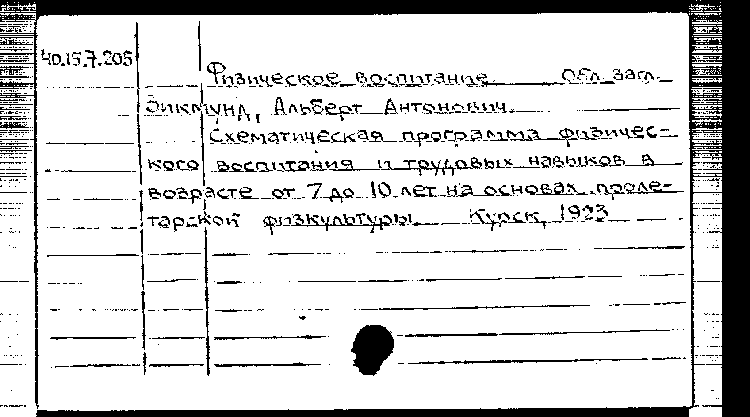 40.15.7.205
Физическое воспитание Обл. загл.
Зикмунд, Альберт Антонович.
Схематическая программа физичес-
кого воспитания и трудовых навыков в
возрасте от 7 до 10 лет на основах проле-
тарской физкультуры. Курск, 1923